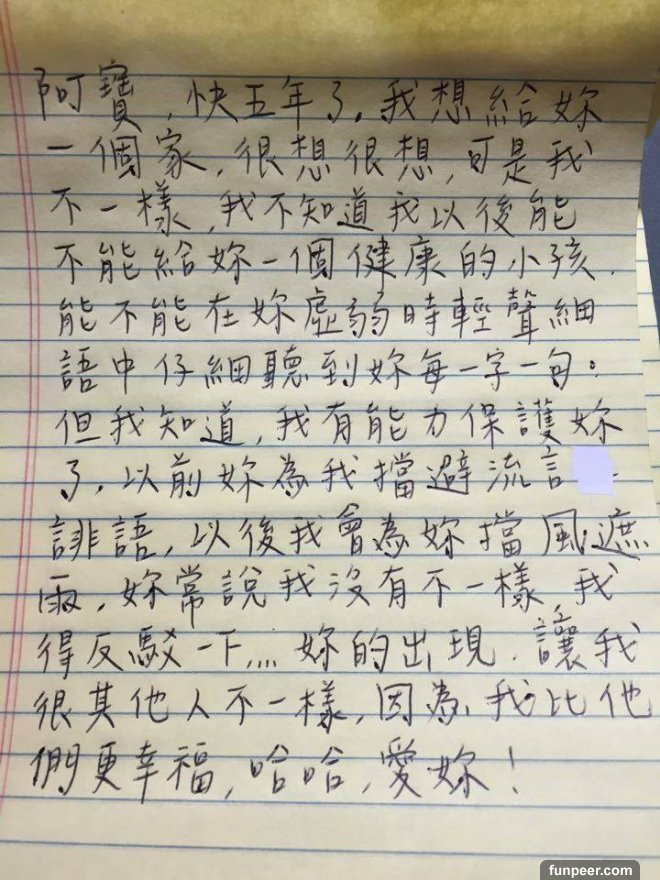 阿寶,快五年了,我想給妳
一個家,很想很想,可是我
不一樣,我不知道我以後能
不能給妳一個健康的小孩,
能不能在妳虛弱時輕聲細
語中仔細聽到妳每一字一句:
但我知道,我有能力保護妳
了,以前妳為我擋避流言
誹語,以後我會為妳擋風遮
雨,妳常說我沒有不一樣,我
得反駁一下...妳的出現,讓我
很其他人不一樣,因為我比他
們更幸福,哈哈,愛妳!
funpeer.com